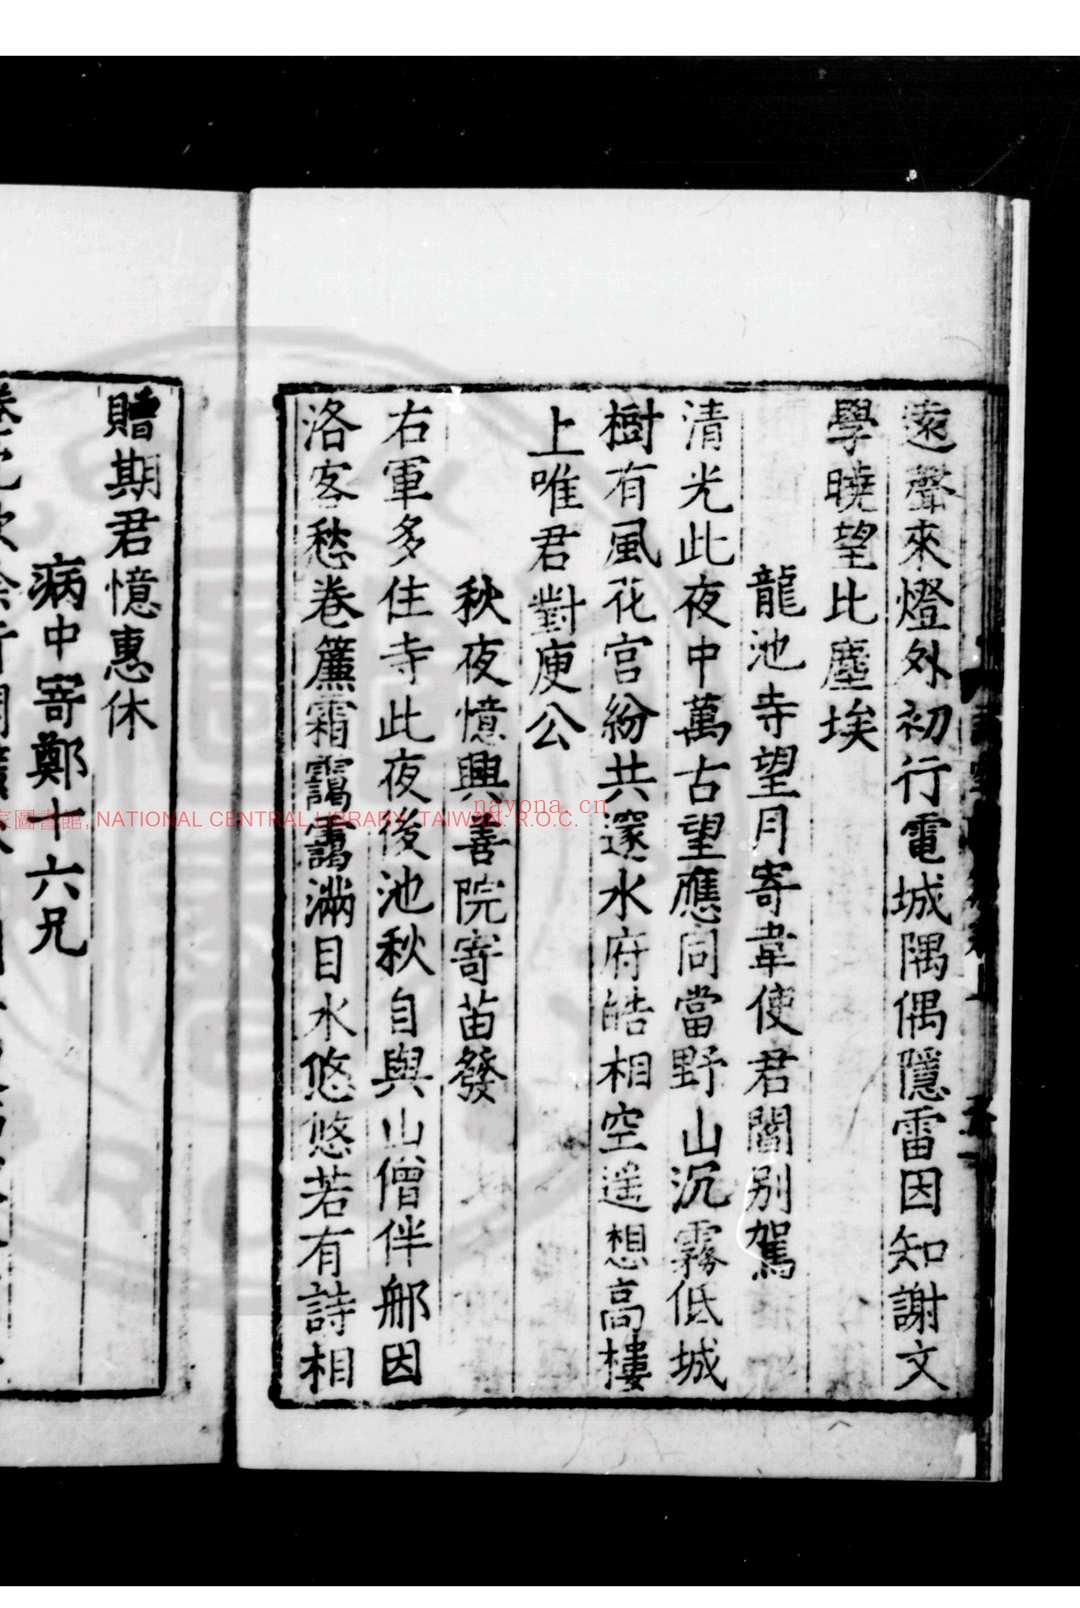 遠聲來燈外初行電城隅偶隱雷因知謝文
學曉望比塵埃
龍池寺望月寄韋使君閻別駕
清光此夜中萬古望應同當野山沉霧低城
樹有風花宮紛共邃水府皓相空遥想高樓
上唯君對庾公
秋夜憶興善院寄苗發
右軍多住寺此夜後池秋自與山僧伴郍因
洛客愁卷簾霜靄靄滿目水悠悠若有詩相
贈期君憶惠休
病中寄鄭十六兄
國家圖書館, NATIONAL CENTRAL LIBRARY, TAIWAN. R.O.C.
nayona.cn